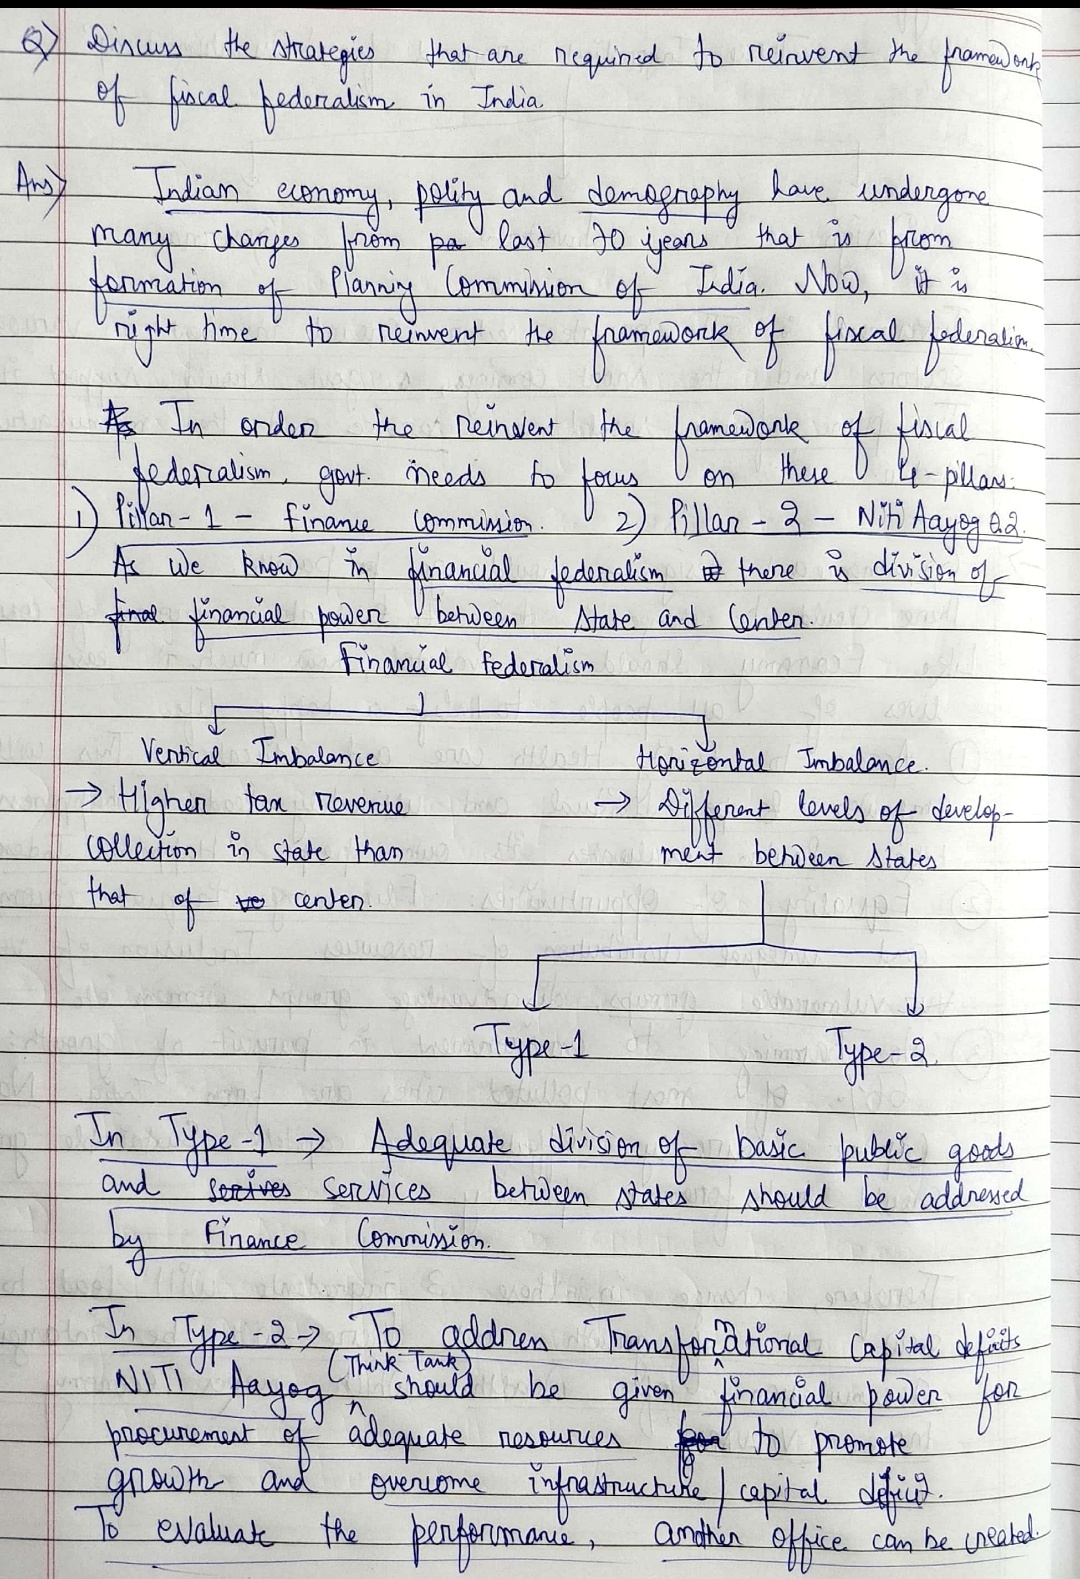 Q) Discuss the strategies that are required to reinvent the framework
of fiscal federalism in India
Ans) Indian economy, polity and demography have undergone
many changes from pa last 70 years that is from
formation of Planning Commission of India. Now, it is
right time to reinvent the framework of fiscal federalism.
As In order the reinvent the framework of fiscal
federalism, govt. needs to focus on these 4-pillars.
1) Pillar-1 - finance commission. 2) Pillar-2 - Niti Aayog 2.
As we know in financial federalism there is division of
final financial power between state and Center.
Financial federalism
Vertical Imbalance Horizontal Imbalance.
→ Higher tax revenue → Different levels of develop-
collection in state than ment between states
that of center.
Type-1 Type-2.
In Type-1 → Adequate division of basic public goods
and services between states should be addressed
by Finance Commission.
In Type-2 → To address Transformational Capital deficits
NITI Aayog (Think Tank) should be given financial power for
procurement of adequate resources for to promote
growth and overcome infrastructure / capital deficit.
To evaluate the performance, another office can be created.